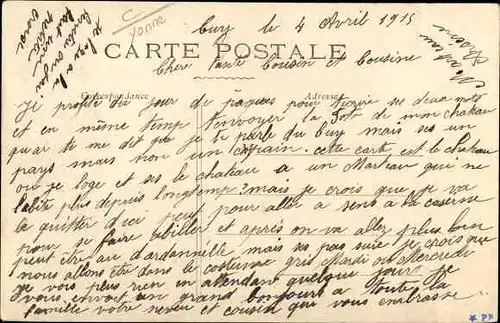 Yonne
Cuy le 4 Avril 1915
CARTE POSTALE
Chere tante Cousin et Cousine
Correspondance Adresse
Je profite du jour de pâques pour t'ecrire ses deux mots
et en même temp t'invoyer la foto de mon chateau
quar te me dit que je te parle du Cuy mais ses un
pays mais non un copain. cette carte est le chateau
ou je loge et ses le chateau a un Marteau qui ne
l'abite plus depuis longtemp: mais je crois que je va
la quitter d'ici peut pour aller a sens a la caserne
pour se faire abiller et après on va allez plus loin
peut être au dardannelle mais ses pas sure je crois que
nous allons être dans le costusme gris Mardi ou Mercredi
je vois plus rien en attendan quelque jours je
vous envoit un grand bonjours a toute la
famille votre neveu et cousin qui vous embrasse
je loge a la
PF